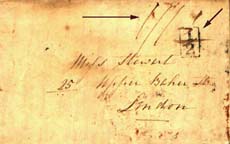 1/2
Miss Stewart
25 Upper Baker St
London